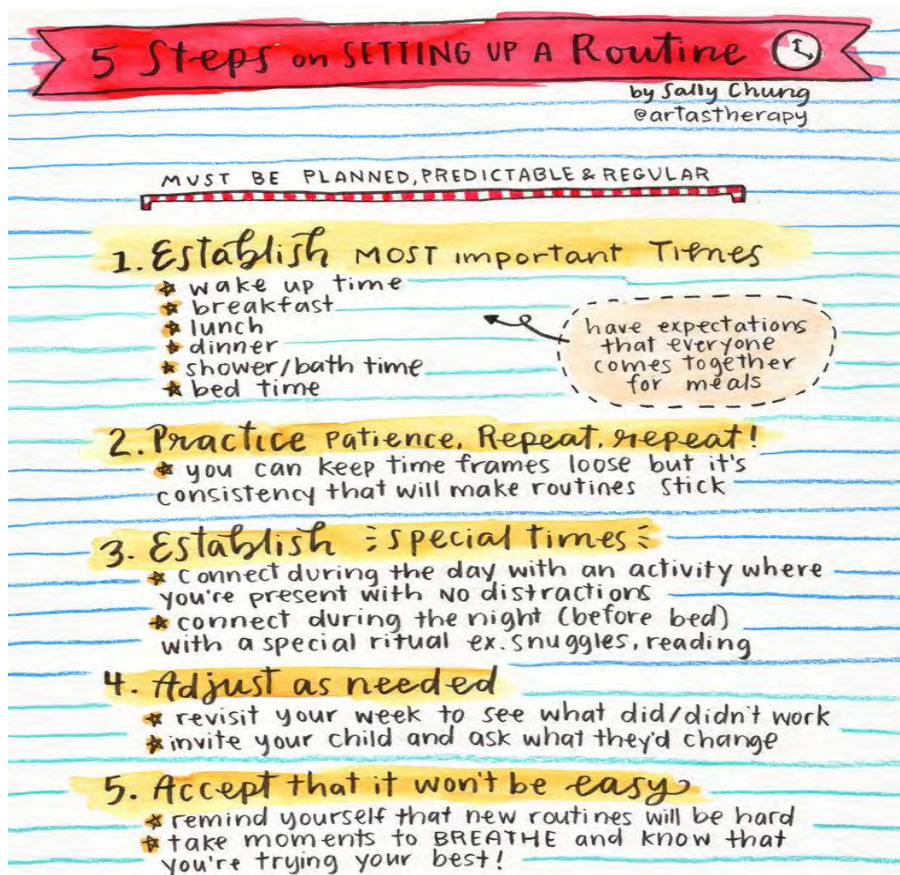 5 Steps on SETTING UP A Routine
by Sally Chung
@artastherapy
MUST BE PLANNED, PREDICTABLE & REGULAR
1. Establish MOST important Times
wake up time
breakfast
lunch
dinner
shower/bath time
bed time
have expectations
that everyone
comes together
for meals
2. Practice patience. Repeat, repeat!
you can keep time frames loose but it's
consistency that will make routines stick
3. Establish special times
connect during the day with an activity where
you're present with NO distractions
connect during the night (before bed)
with a special ritual ex. snuggles, reading
4. Adjust as needed
revisit your week to see what did/didn't work
invite your child and ask what they'd change
5. Accept that it won't be easy
remind yourself that new routines will be hard
take moments to BREATHE and know that
you're trying your best!